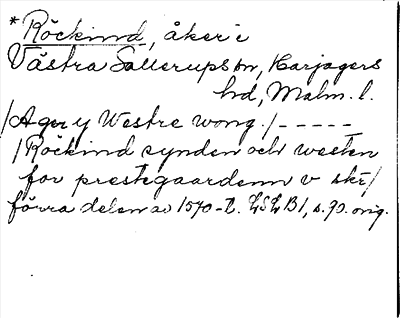 *Röckind, åker i
Västra Sallerups sn, Harjagers
hd, Malm. l.
/Ager y Westre wong./ _ _ _ _ _
/Röckind synden och westen
for prestegaardenn v skr/
förra delen av 1570-t. LSLB1, s. 90. orig.